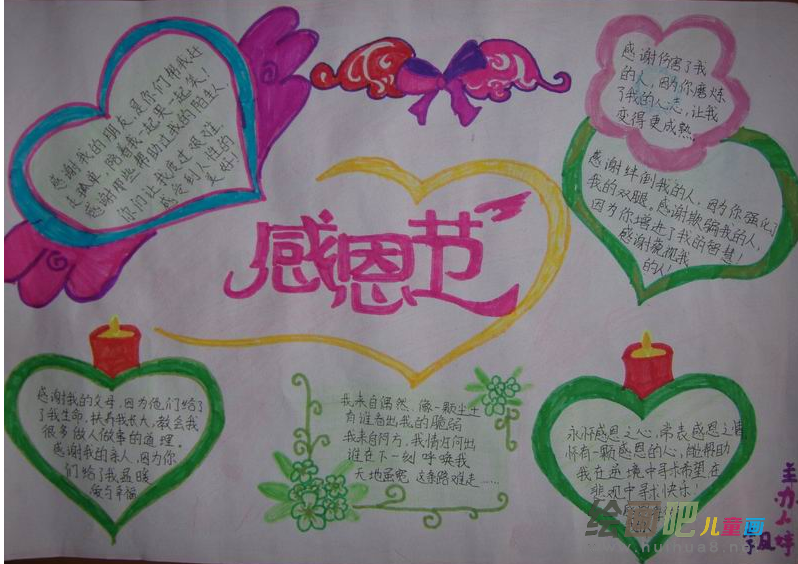 感谢我的朋友,是你们帮我赶
走孤单,陪着我一起哭一起笑!
感谢那些帮助过我的陌生人,
你们让我度过艰难
感受到人性的
美好!
感谢伤害了我
的人,因为你磨炼
了我的心志,让我
变得更成熟。
感谢绊倒我的人,因为你强化了
我的双腿。感谢欺骗我的人,
因为你增进了我的智慧!
感谢藐视我
的人!
感恩节
感谢我的父母,因为他们给了
了我生命,扶养我长大,教会我
很多做人做事的道理。
感谢我的亲人,因为你
们给了我温暖
与幸福
我来自偶然,像一颗尘土
有谁看出我的脆弱
我来自何方,我情归何处
谁在下一刻呼唤我
天地虽宽,这条路难走……
永怀感恩之心,常表感恩之情
怀有一颗感恩的心,能帮助
我在逆境中寻求希望,在
悲观中寻求快乐。
主办人
婷
绘画吧儿童画
www.huihua8.net